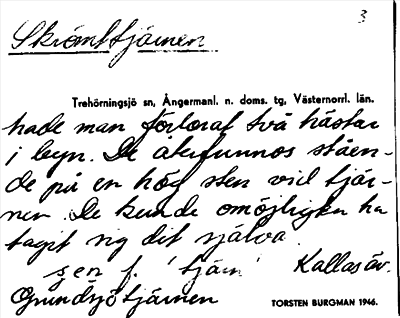 3
Skrömttjärnen
Trehörningsjö sn, Ångermanl. n. doms. tg, Västernorrl. län.
hade man förlorat två hästar
i byn. De återfunnos ståen-
de på en hög sten vid tjär-
nen. De kunde omöjligen ha
tagit sig dit själva.
gen f. 'tjärn' Kallas äv.
Grundsjötjärnen
TORSTEN BURGMAN 1946.